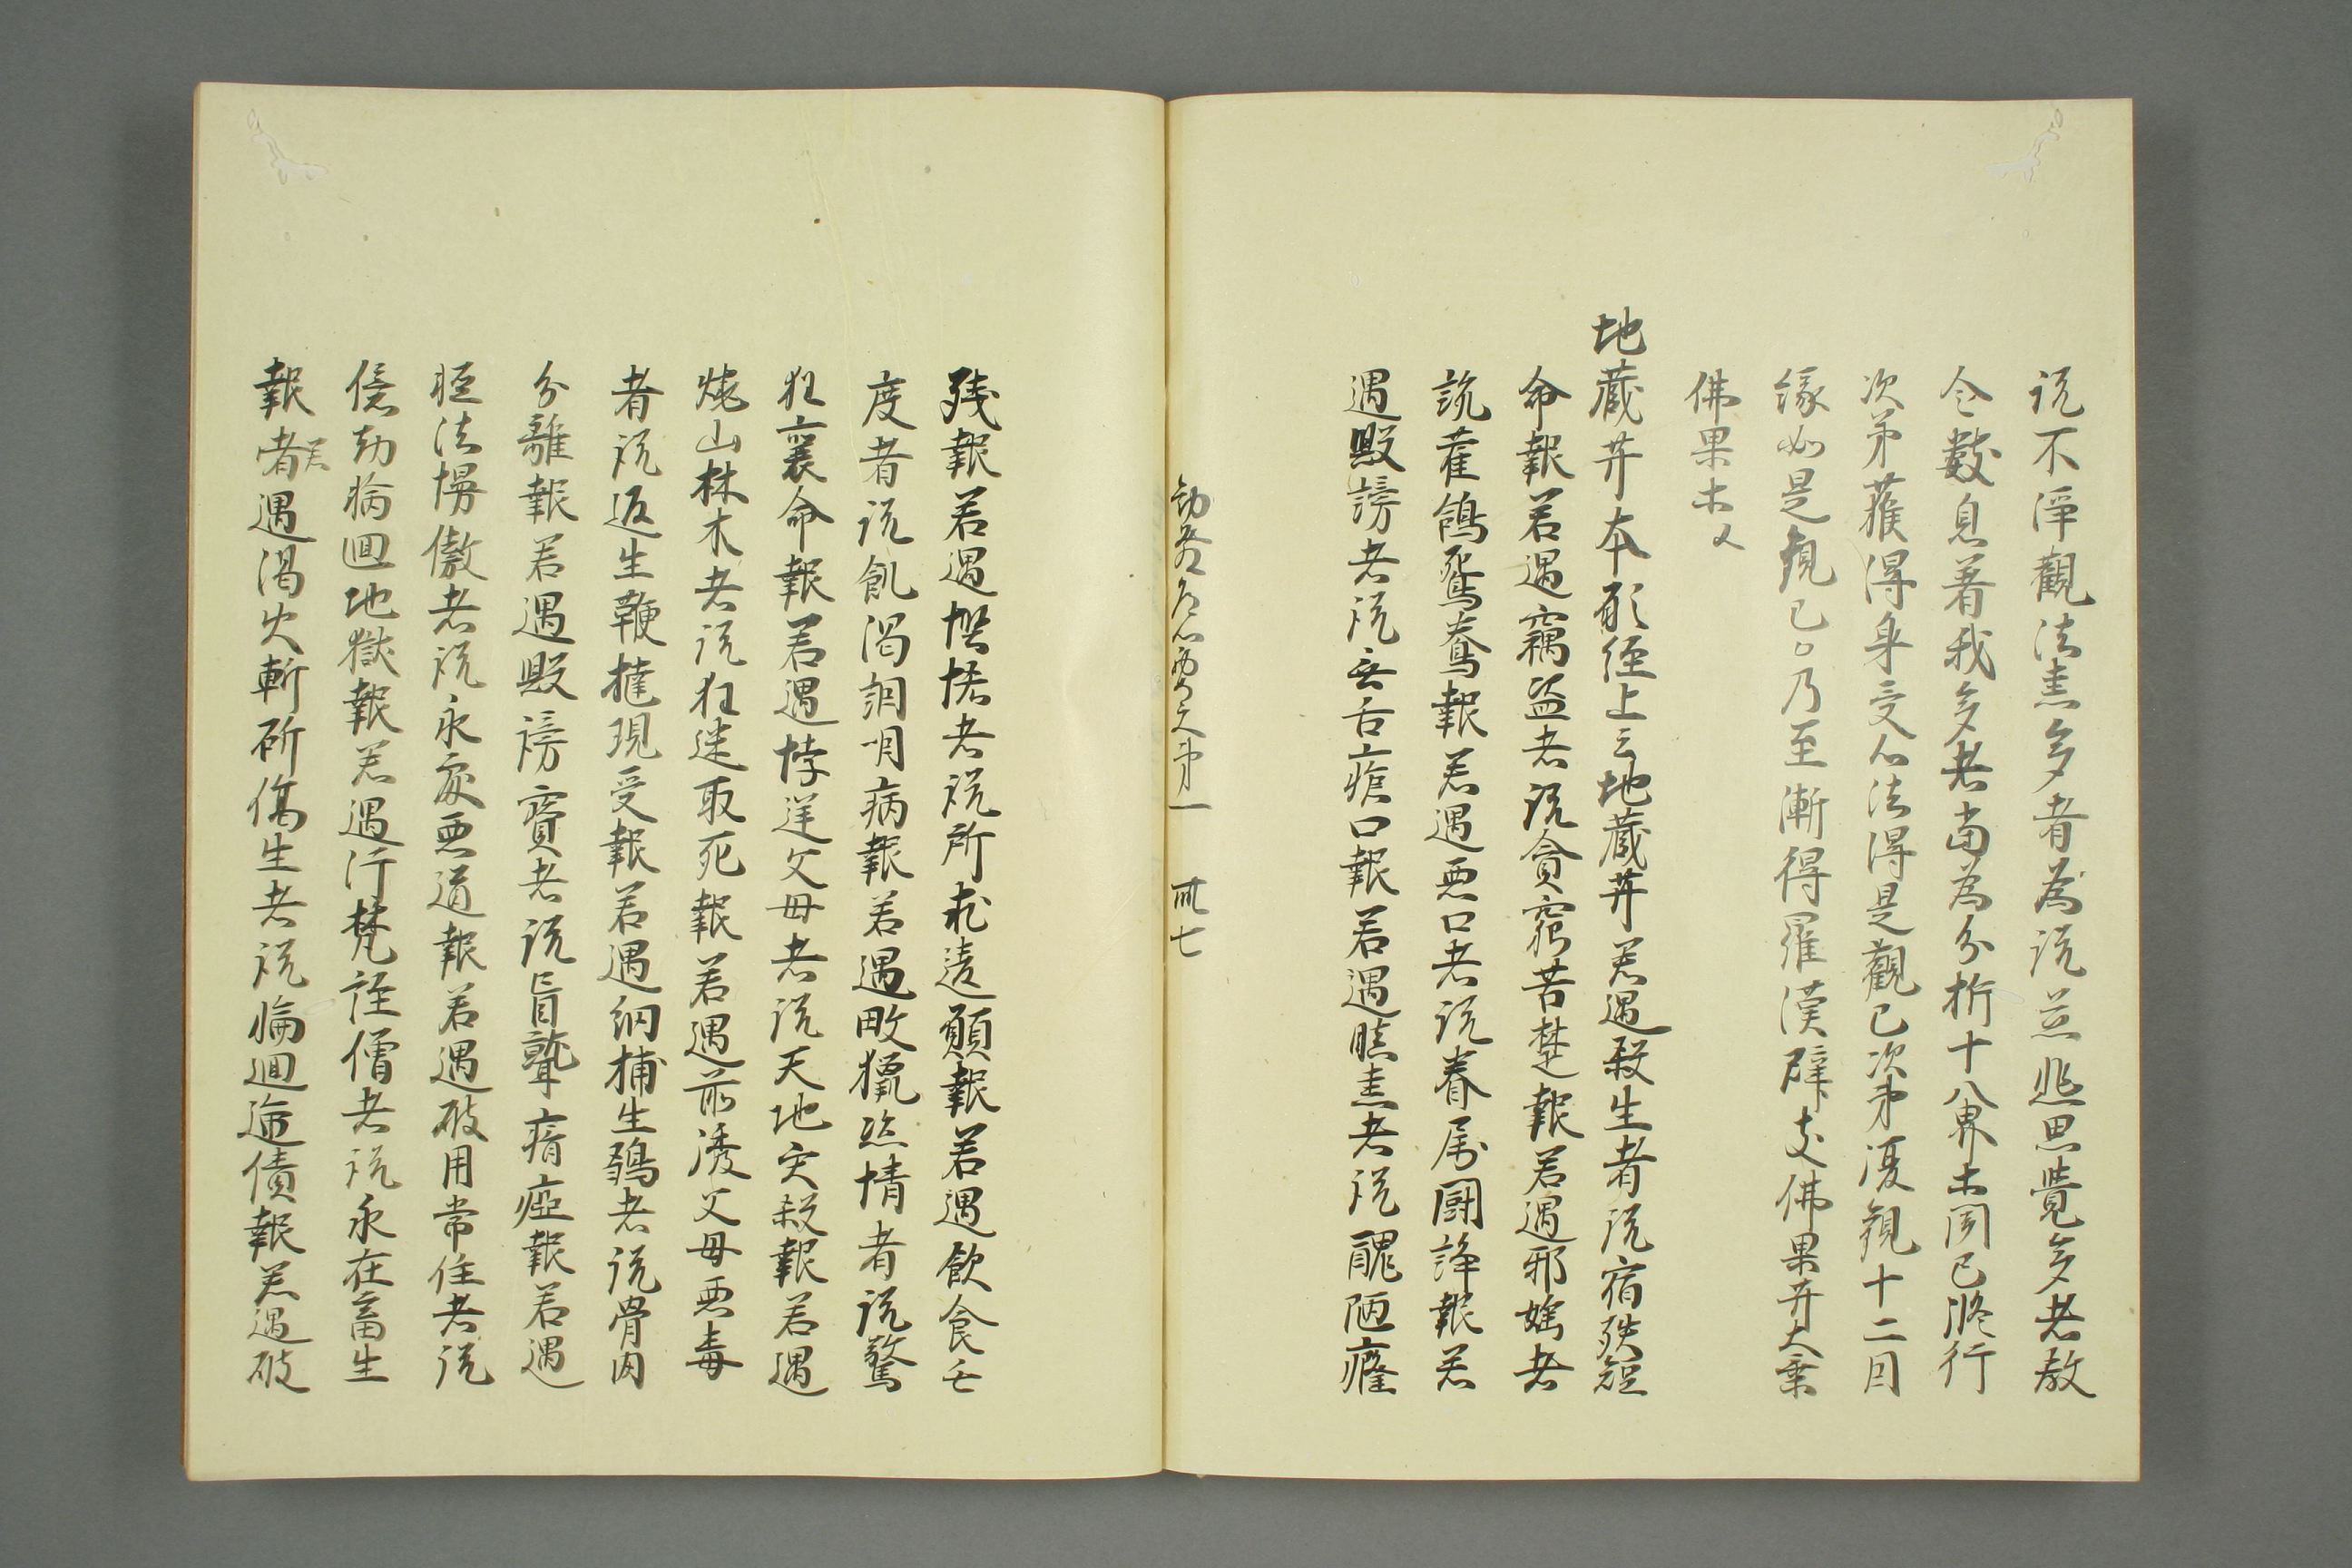 説不淨觀法恚多者為説慈悲思覺多者教
令數息着我多者当為分析十八界木聞已修行
次第獲得身受心法得是觀已次第復觀十二因
緣如是觀已乃至漸得羅漢辟支佛果菩大乗
佛果木文
地蔵菩本願経上云地蔵菩若遇殺生者説宿殃短
命報若遇竊盗者説貪窮苦楚報若遇邪婬者
説雀鴿鴛鴦報若遇悪口者説眷属闘諍報若
遇毀謗者説無舌瘡口報若遇瞋恚者説醜陋癃
第一 卌七
残報若遇慳悋者説所求違願報若遇飲食无
度者説飢渇咽病報若遇畋獵恣情者説驚
狂喪命報若遇悖逆父母者説天地災殺報若遇
焼山林木者説狂迷取死報若遇前後父母悪毒
者説返生鞭撻現受報若遇網捕生鶵者説骨肉
分離報若遇毀謗寶者説盲聾瘖瘂報若遇
軽法慢傲者説永處悪道報若遇破用常住者説
億劫輪迴地獄報若遇汙梵誣僧者説永在畜生
報者若遇湯火斬斫傷生者説輪迴遞債報若遇破